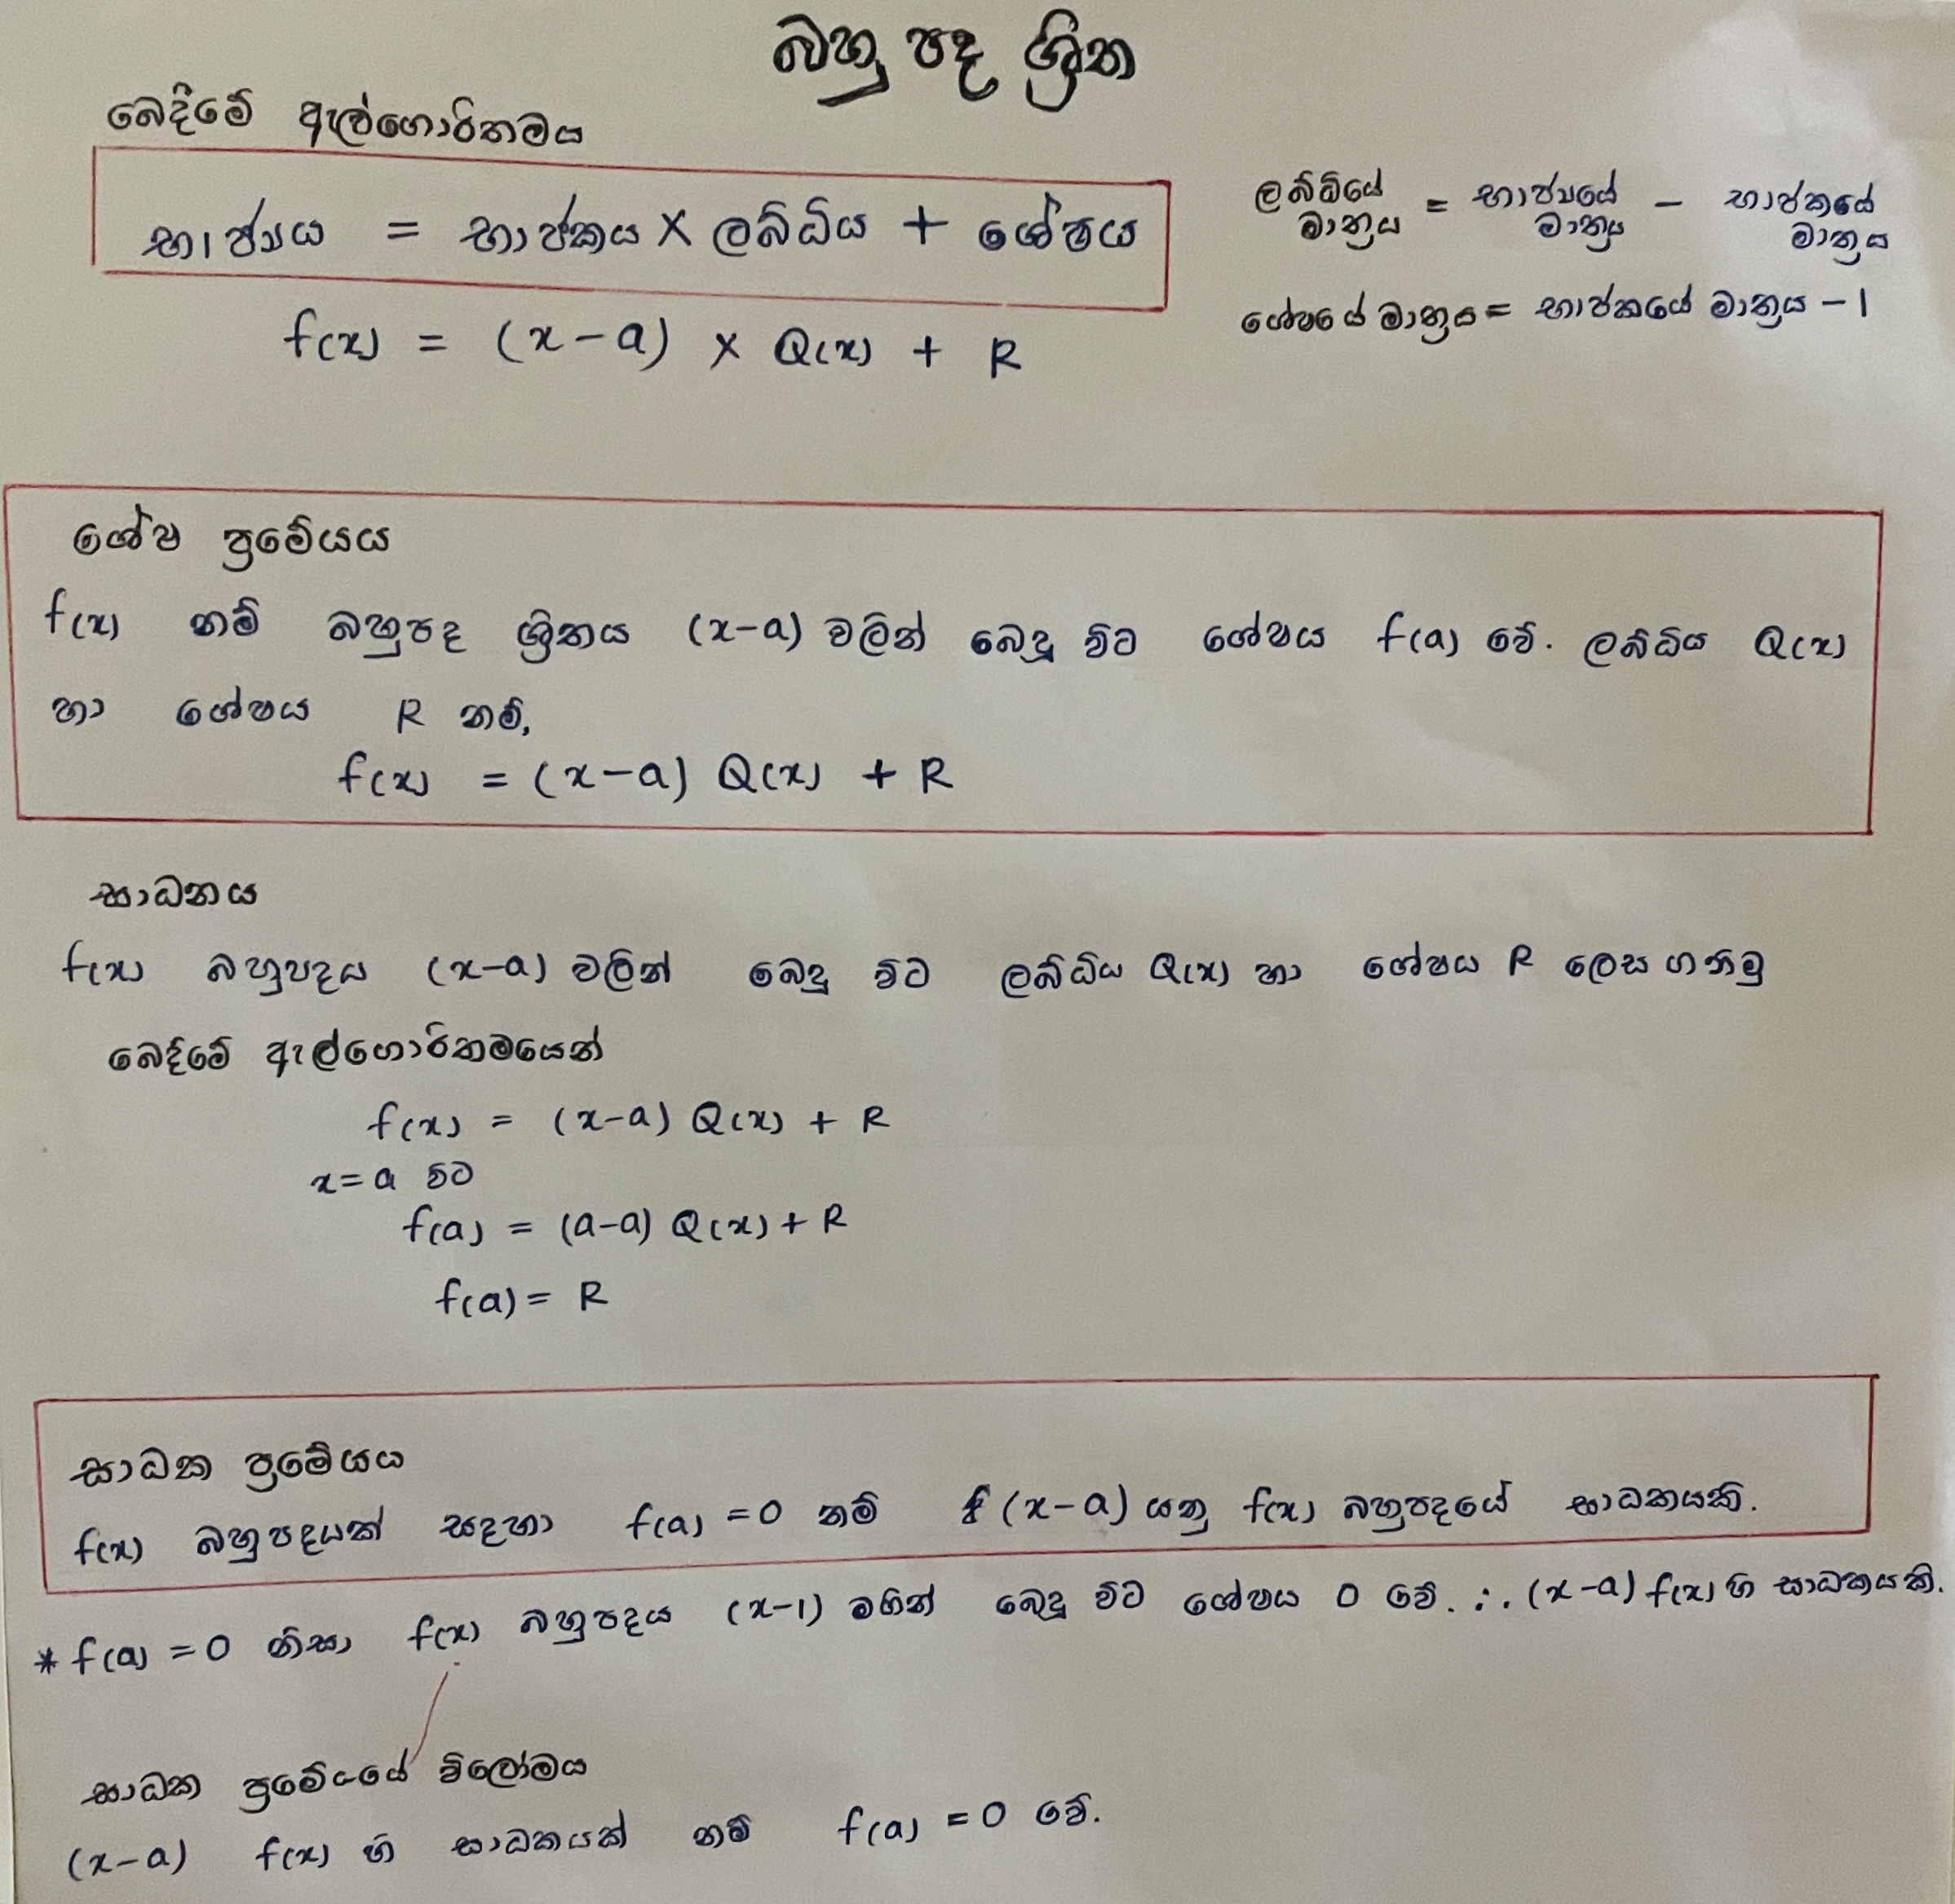 බහු පද ශ්‍රිත
බෙදීමේ ඇල්ගොරිතමය
භාජ්‍යය = භාජකය × ලබ්ධිය + ශේෂය
ලබ්ධියේ මාත්‍රය = භාජ්‍යයේ මාත්‍රය - භාජකයේ මාත්‍රය
ශේෂයේ මාත්‍රය = භාජකයේ මාත්‍රය - 1
f(x) = (x-a) × Q(x) + R
ශේෂ ප්‍රමේයය
f(x) නම් බහුපද ශ්‍රිතය (x-a) වලින් බෙදූ විට ශේෂය f(a) වේ. ලබ්ධිය Q(x)
හා ශේෂය R නම්,
f(x) = (x-a) Q(x) + R
සාධනය
f(x) බහුපදය (x-a) වලින් බෙදූ විට ලබ්ධිය Q(x) හා ශේෂය R ලෙස ගනිමු
බෙදීමේ ඇල්ගොරිතමයෙන්
f(x) = (x-a) Q(x) + R
x=a විට
f(a) = (a-a) Q(x) + R
f(a) = R
සාධක ප්‍රමේයය
f(x) බහුපදයක් සදහා f(a) = 0 නම් (x-a) යනු f(x) බහුපදයේ සාධකයකි.
* f(a) = 0 නිසා f(x) බහුපදය (x-1) මගින් බෙදූ විට ශේෂය 0 වේ. ∴ (x-a) f(x) හි සාධකයකි.
සාධක ප්‍රමේයයේ විලෝමය
(x-a) f(x) හි සාධකයක් නම් f(a) = 0 වේ.